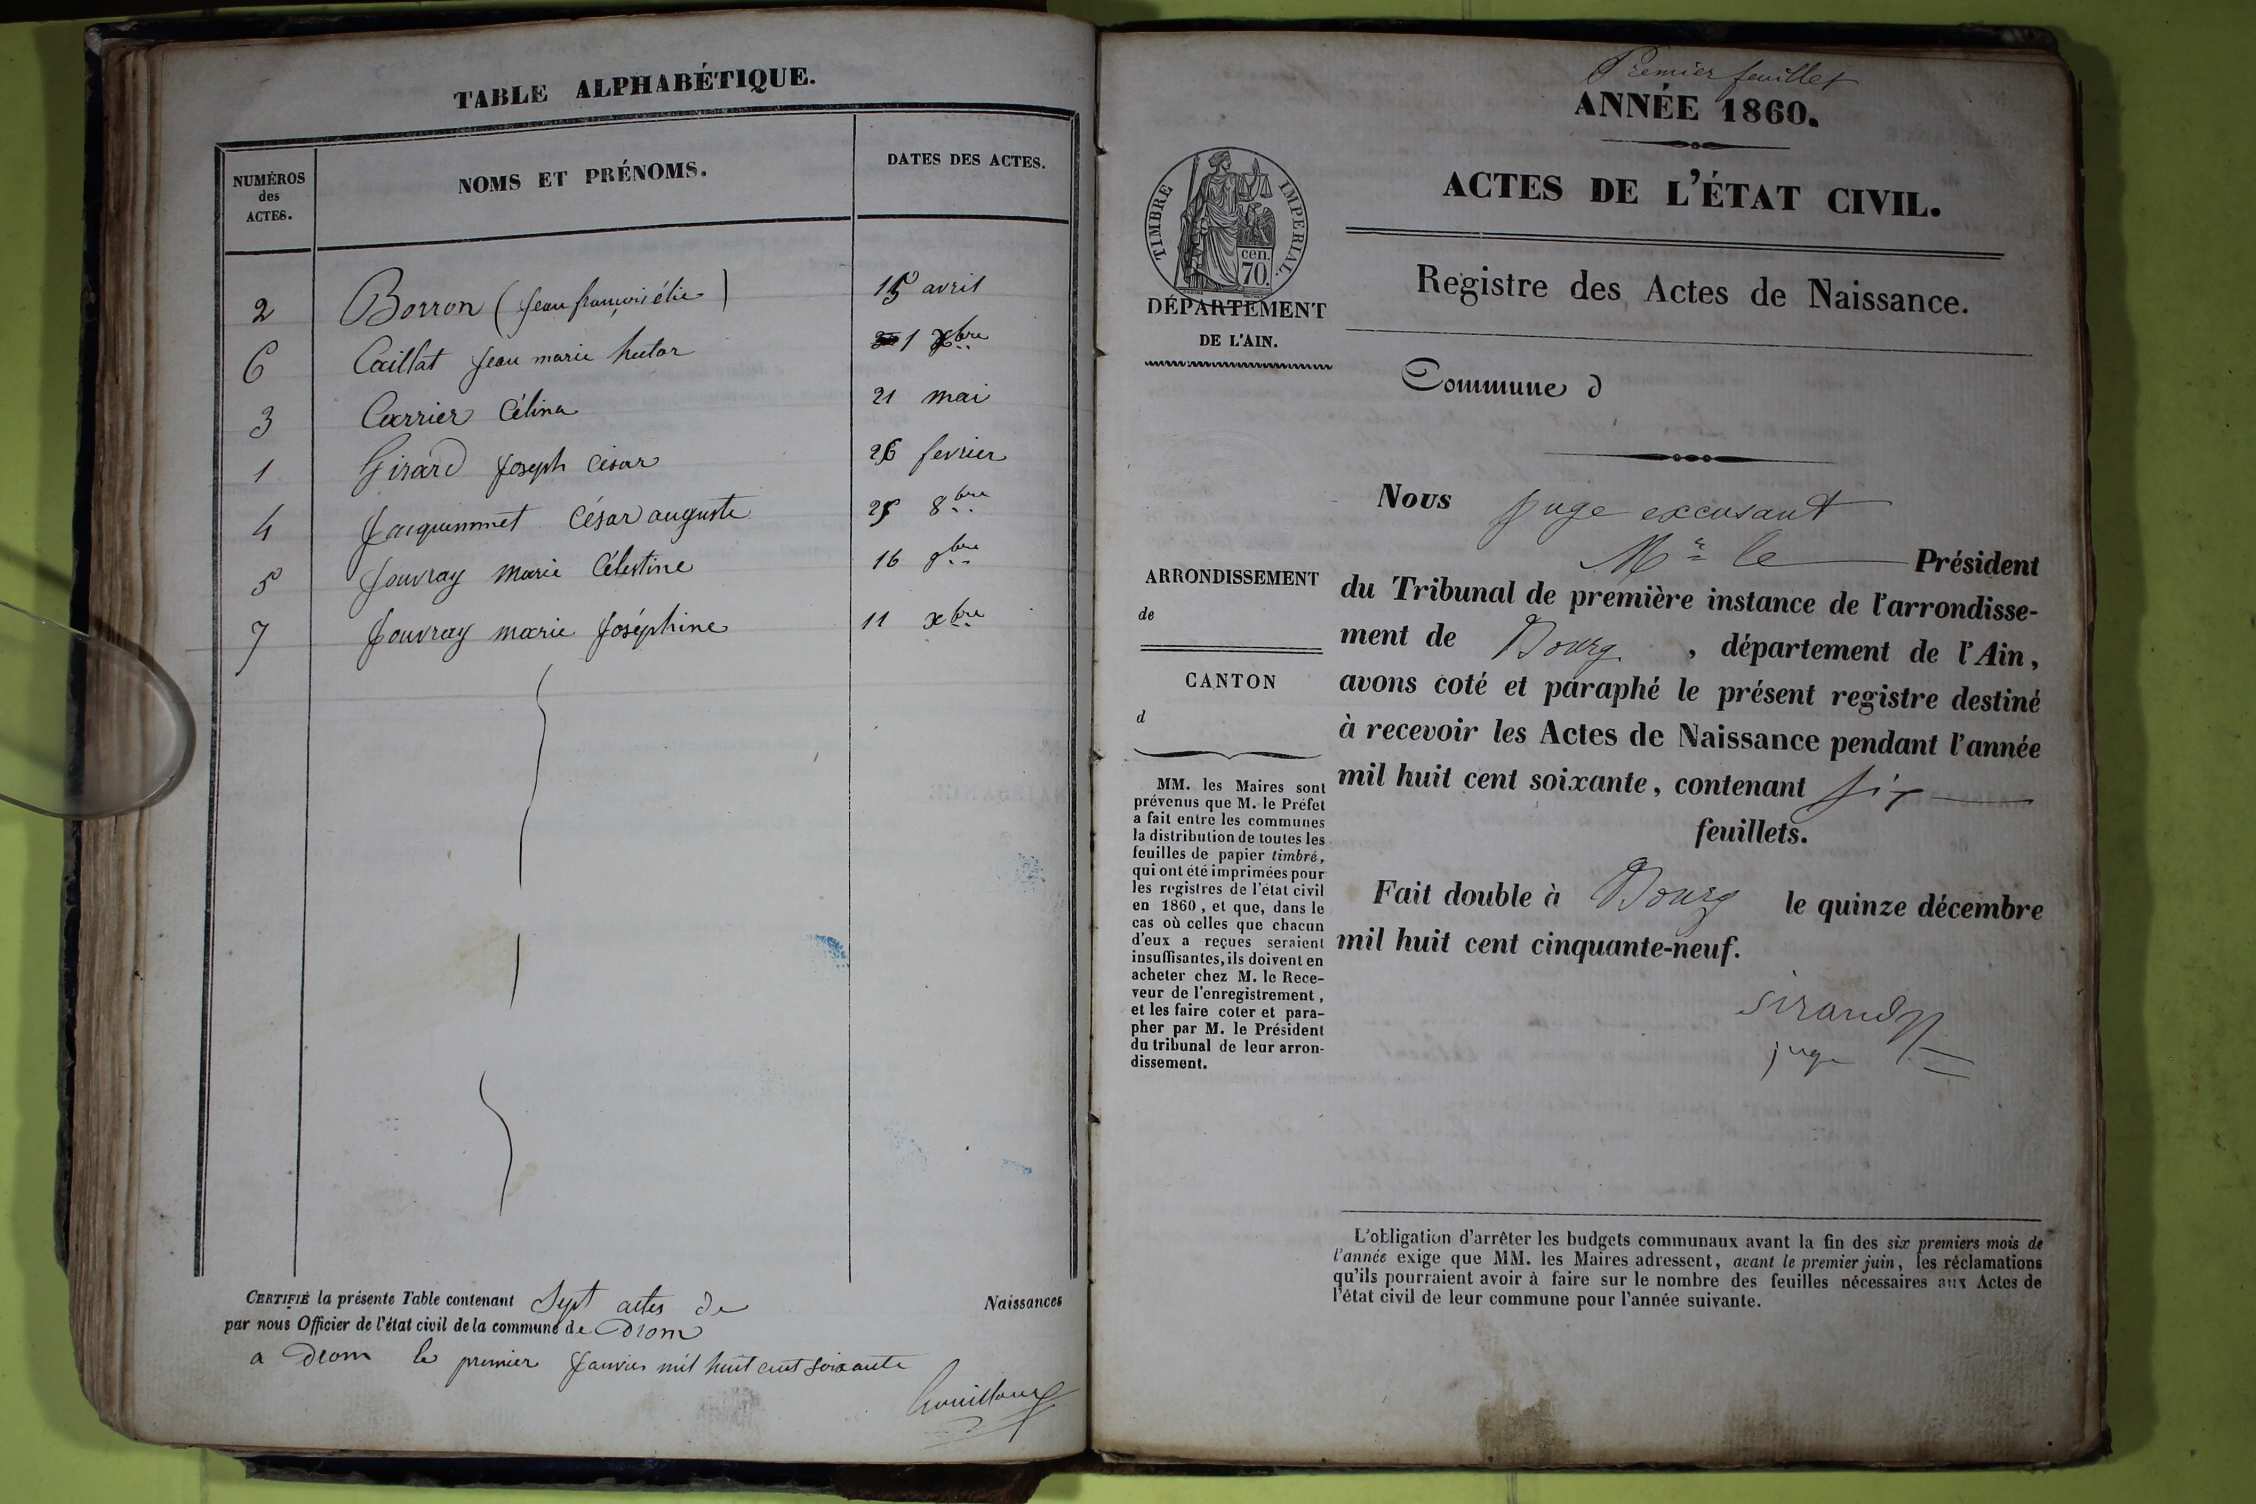 TABLE ALPHABÉTIQUE.
NUMÉROS
des
ACTES.
NOMS ET PRÉNOMS.
DATES DES ACTES.
2 Borron (Jean françois élie) 15 avril
6 Caillat Jean marie hector 1 Xbre
3 Carrier Célina 21 mai
1 Girard Joseph César 26 fevrier
4 Jacquemmet César auguste 25 8bre
5 Jouvray marie Célestine 16 9bre
7 Jouvray marie Joséphine 11 xbre
CERTIFIÉ la présente Table contenant Sept actes de Naissances
par nous Officier de l'état civil de la commune de Drom
a Drom le premier Janvier mil huit cent soixante
Premier feuillet
ANNÉE 1860.
ACTES DE L'ÉTAT CIVIL.
TIMBRE IMPERIAL.
cen.
70.
DÉPARTEMENT
DE L'AIN.
Registre des Actes de Naissance.
Commune d
Nous juge excusant
Mr le Président
du Tribunal de première instance de l'arrondisse-
ment de Bourg, département de l'Ain,
avons coté et paraphé le présent registre destiné
à recevoir les Actes de Naissance pendant l'année
mil huit cent soixante, contenant six
feuillets.
Fait double à Bourg le quinze décembre
mil huit cent cinquante-neuf.
Sirand
juge
ARRONDISSEMENT
de
CANTON
d
MM. les Maires sont
prévenus que M. le Préfet
a fait entre les communes
la distribution de toutes les
feuilles de papier timbré,
qui ont été imprimées pour
les registres de l'état civil
en 1860, et que, dans le
cas où celles que chacun
d'eux a reçues seraient
insuffisantes, ils doivent en
acheter chez M. le Rece-
veur de l'enregistrement,
et les faire coter et para-
pher par M. le Président
du tribunal de leur arron-
dissement.
L'obligation d'arrêter les budgets communaux avant la fin des six premiers mois de
l'année exige que MM. les Maires adressent, avant le premier juin, les réclamations
qu'ils pourraient avoir à faire sur le nombre des feuilles nécessaires aux Actes de
l'état civil de leur commune pour l'année suivante.